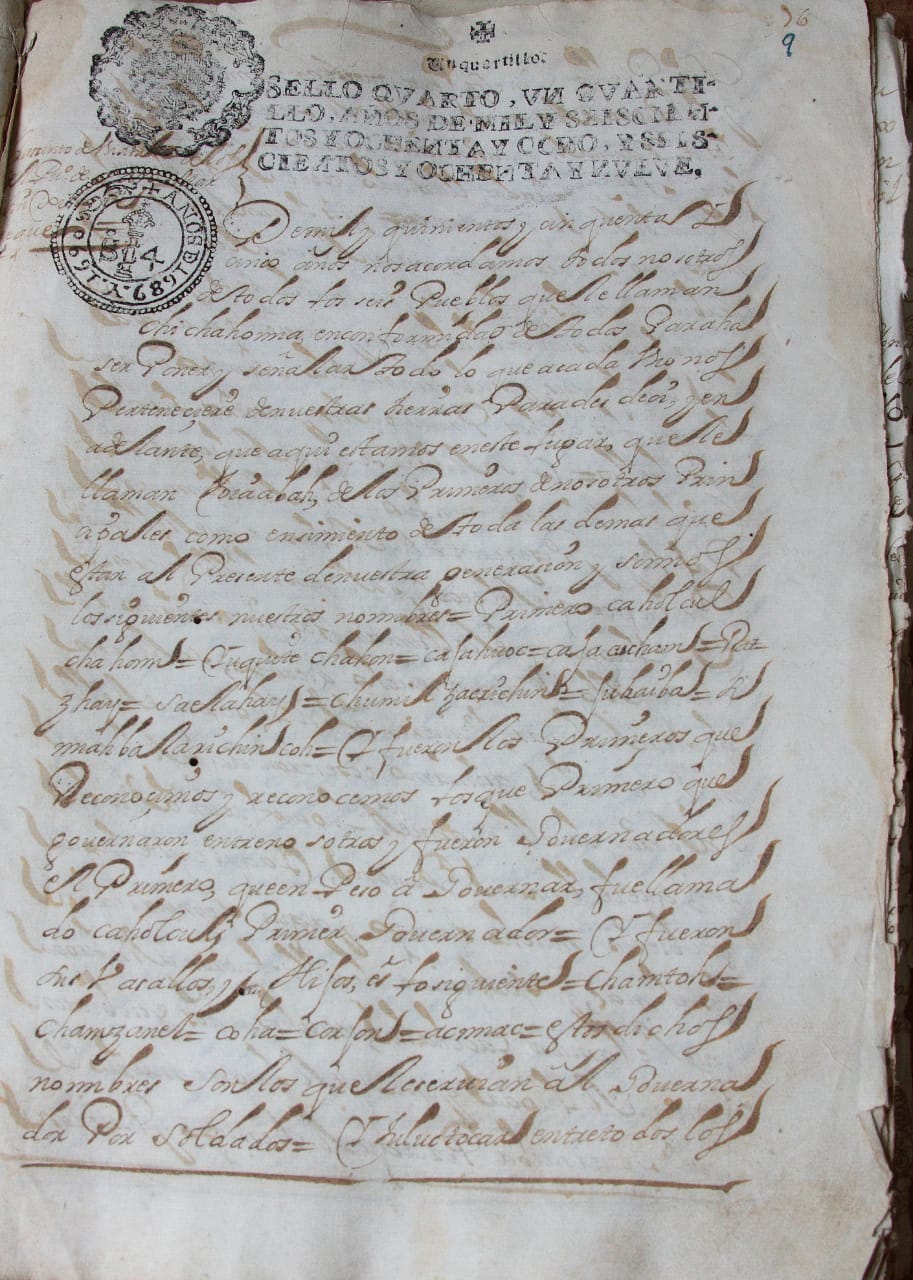 36
9
Un quartillo.
SELLO QVARTO, VN QVARTI-
LLO, AÑOS DE MIL Y SEISCIEN-
TOS Y OCHENTA Y OCHO, Y SEIS-
CIENTOS Y OCHENTA Y NVEVE.
AÑOS D 1689 Y 1690
De mil y quinientos y cinquenta Y
cinco años nos acordamos todos nosotros
destodos los seis Pueblos que le llaman
Chichahoma, en conformidad de todos Paraha
ser Poner y señalar todo lo que acada Uno nos
Perteneçiere denuestras tierras Parades deoi, y en
adelante, que aqui estamos eneste lugar, que le
llaman de los Primeros de nosotros Prin
cipales como ensimiento de toda las demas que
estan al Presente de nuestra generacion y somos
los siguientes nuestros nombres= Primero caholcul
chahom= chahon= casahuoc= =
zhay= =
= Y fueron los Primeros que
Reconoçimos y reconocemos los que Primero que
governaron entre nosotros y fueron Governadores
el Primero, que enPeso â Governar, fue llama
do caholcul, Primer Governador= Y fueron
sus Vasallos, y sus Hijos, es lo siguiente= Chamtoh=
Chamzanel= coha= = = estos dichos
nombres son los que le servian âl Governa
dor Por Soldados= Y entretodos los